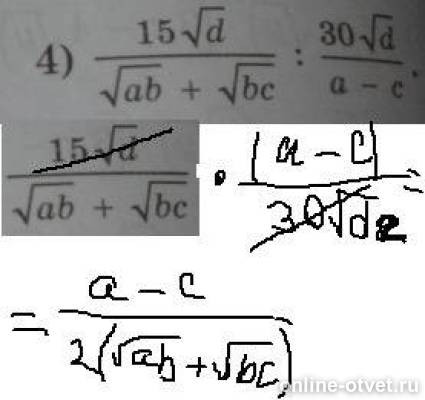 4) 15√d / (√ab + √bc) : 30√d / (a − c).
15√d / (√ab + √bc) · (a − c) / 30√d 2 =
= a − c / 2(√ab + √bc)
online-otvet.ru